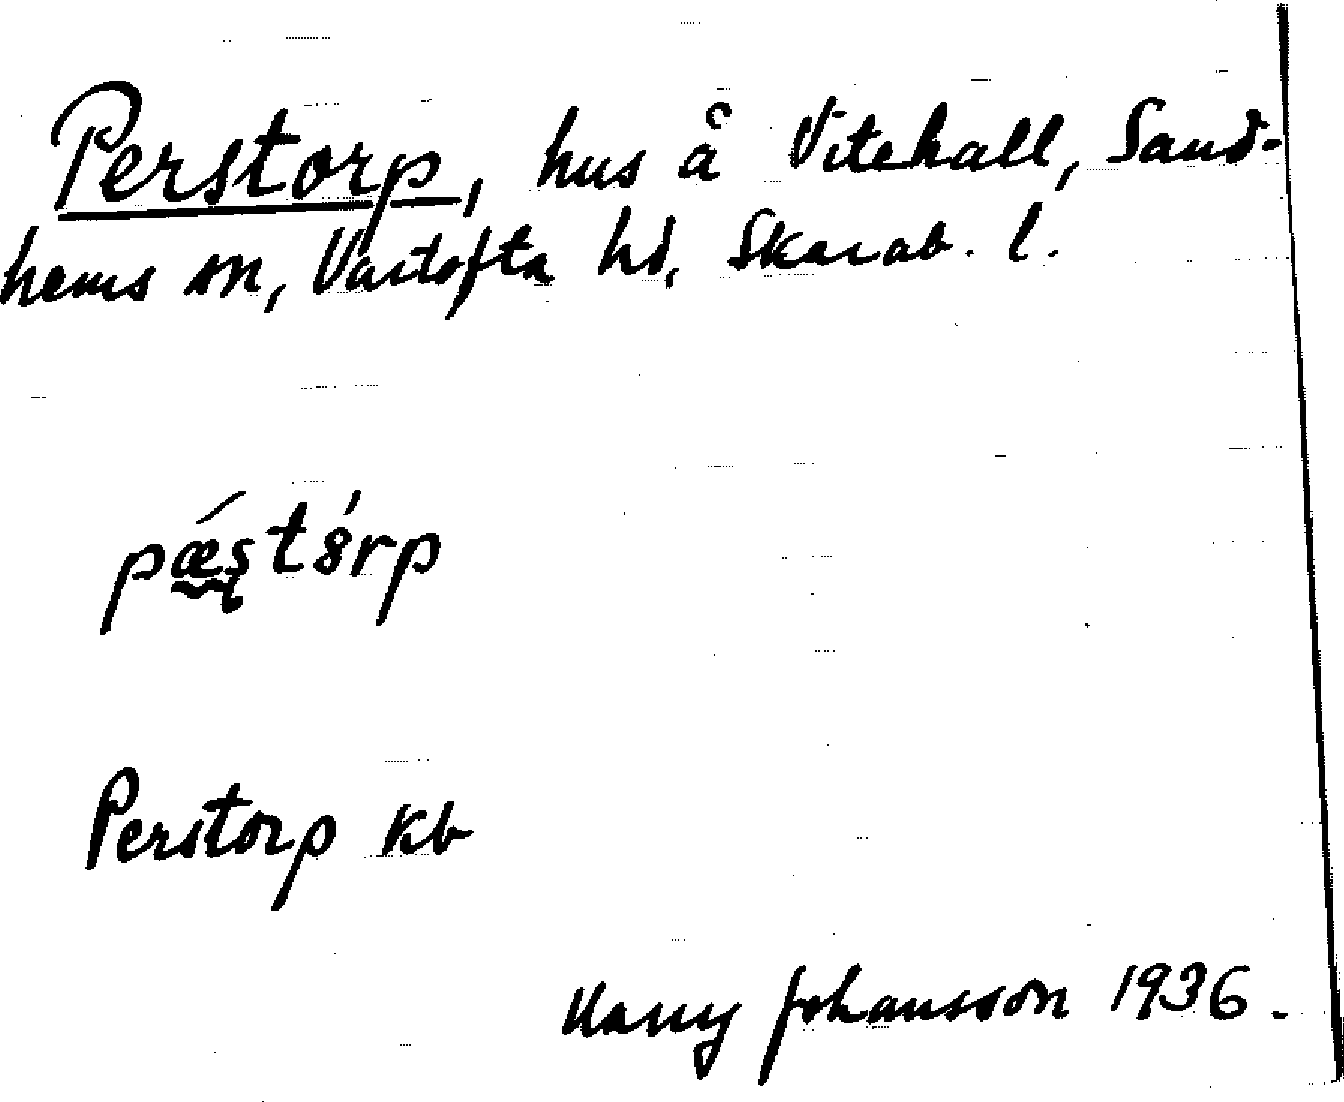 Perstorp, hus å Vitehall, Sand-
hems sn, Vartofta hd, Skarab. l.
pǽştŏ́rp
Perstorp kb
Harry Johansson 1936.